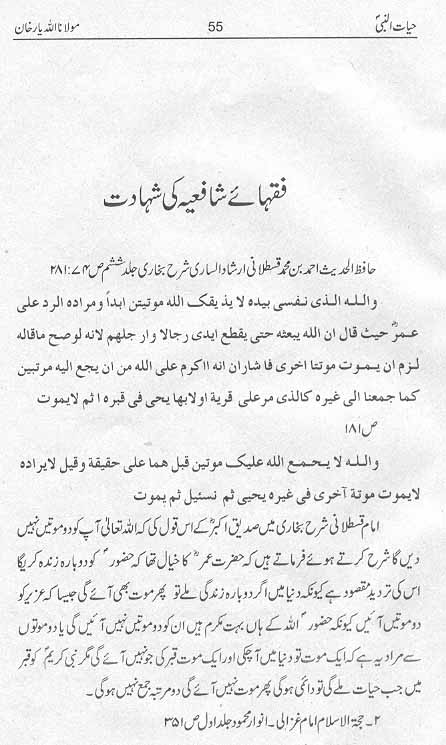 حیات النبیؐ 55 مولانا اللہ یار خان
فقہائے شافعیہ کی شہادت
حافظ الحدیث احمد بن محمد قسطلانی ارشاد الساری شرح بخاری جلد ششم ص ۷۴:۲۸۱
واللـه الـذی نـفسی بیده لا یذ یقک الله موتیتن ابداً ومراده الرد علی
عمرؓ حیث قال ان الله یبعثه حتی یقطع ایدی رجالا وار جلهم لانه لوصح ماقاله
لزم ان یموت موتتا اخری فاشاران انه ااکرم علی الله من ان یجع الیه مرتبین
کما جمعنا الی غیره کالذی مرعلی قریة اولابها یحی فی قبره ا ثم لایموت
ص ۱۸۱
واللـه لا یـحـمـع الله علیک موتین قبل هما علی حقیقة وقیل لایراده
لایموت موتة آخری فی غیره یحیی ثم نسئیل ثم یموت
امام قسطلانی شرح بخاری میں صدیق اکبرؓ کے اس قول کی کہ اللہ تعالیٰ آپ کو دو موتیں نہیں
دیں گا شرح کرتے ہوئے فرماتے ہیں کہ حضرت عمرؓ کا خیال تھا کہ حضورؐ کو دوبارہ زندہ کریگا
اس کی تردید مقصود ہے کیونکہ دنیا میں اگر دوبارہ زندگی ملے تو پھر موت بھی آئے گی جیسا کہ عزیر کو
دو موتیں آئیں کیونکہ حضورؐ اللہ کے ہاں بہت مکرم ہیں ان کو دو موتیں نہیں آئیں گی یا دو موتوں
سے مراد یہ ہے کہ ایک موت تو دنیا میں آچکی اور ایک موت قبر کی جو نہیں آئے گی مگر نبی کریمؐ کو قبر
میں جب حیات ملے گی تو دائمی ہوگی پھر موت نہیں آئے گی دو مرتبہ جمع نہیں ہوگی۔
۲۔ حجۃ الاسلام امام غزالی۔ انوار محمود جلد اول ص ۳۵۱